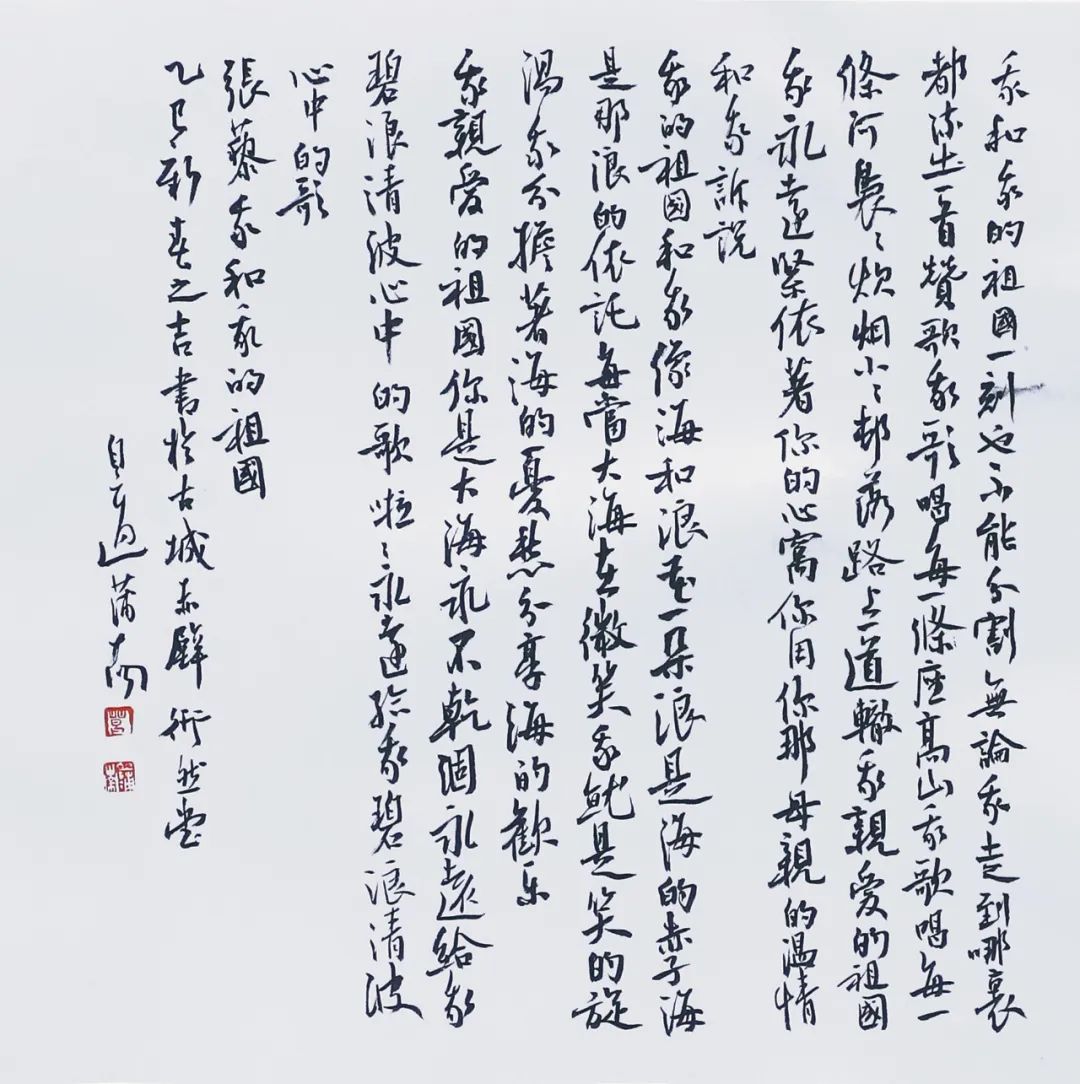 我和我的祖國一刻也不能分割無論我走到哪裏
都流出一首贊歌我歌唱每一條座高山我歌唱每一
條河裊〻炊烟小〻邨落路上一道轍我親愛的祖國
我永遠緊依著你的心窩你用你那母親的温情
和我訴説
我的祖國和我像海和浪花一朵浪是海的赤子海
是那浪的依託每當大海在微笑我就是笑的旋
渦我分擔著海的憂愁分享海的歡樂
我親愛的祖國你是大海永不乾涸永遠給我
碧浪清波心中的歌啦〻永遠給我碧浪清波
心中的歌
張藜我和我的祖國
乙巳新春之吉書於古城赤壁
蒲南